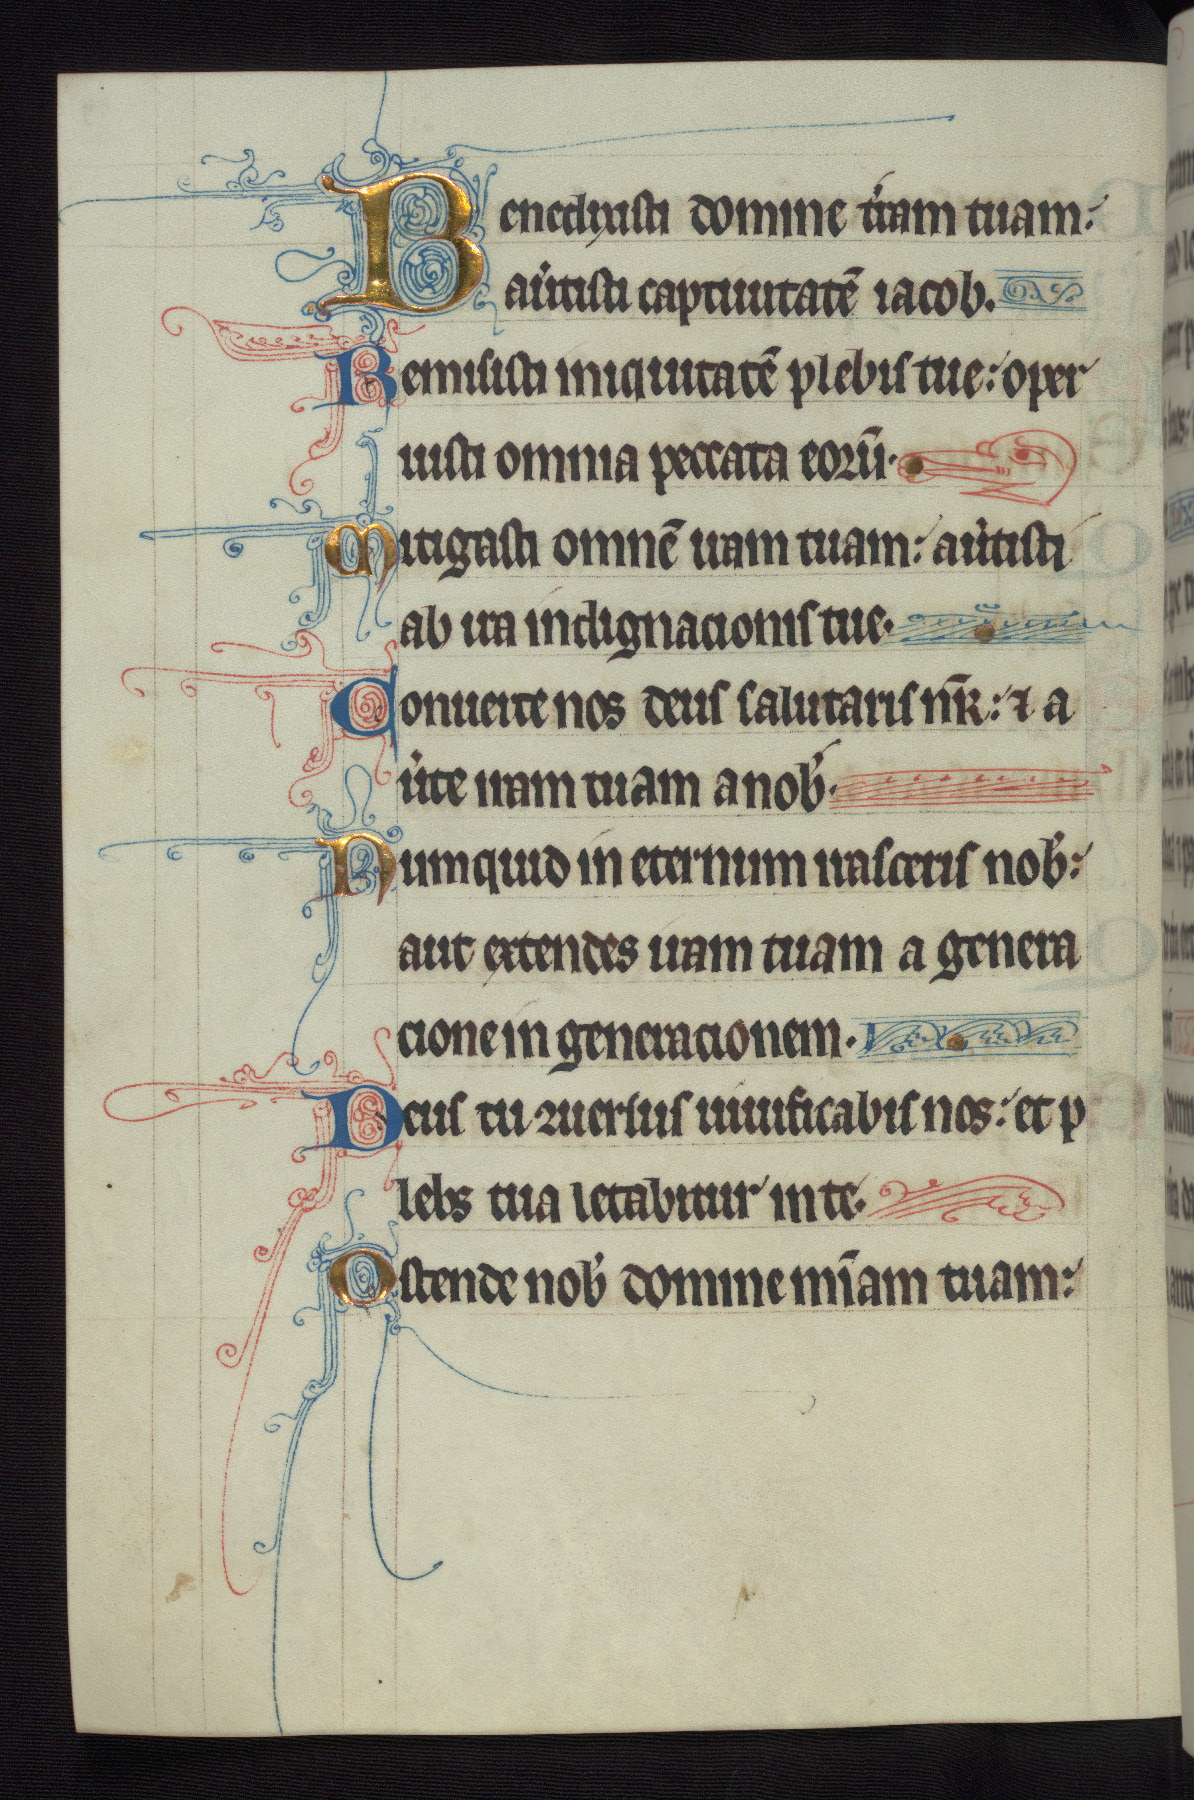 Benedixisti domine t̾ram tuam:
au̾tisti captiuitatē iacob.
Remisisti iniquitatē plebis tue: oper
uisti omnia peccata eorū.
Mitigasti omnē iram tuam: au̾tisti
ab ira indignacionis tue.
Conuerte nos deus salutaris nr̄: ⁊ a
u̾te iram tuam a nob̾.
Numquid in eternum irasceris nob̾:
aut extendes iram tuam a genera
cione in generacionem.
Deus tu ꝛuersus uiuificabis nos: et p
lebs tua letabitur in te.
Ostende nob̾ domine mīam tuam: